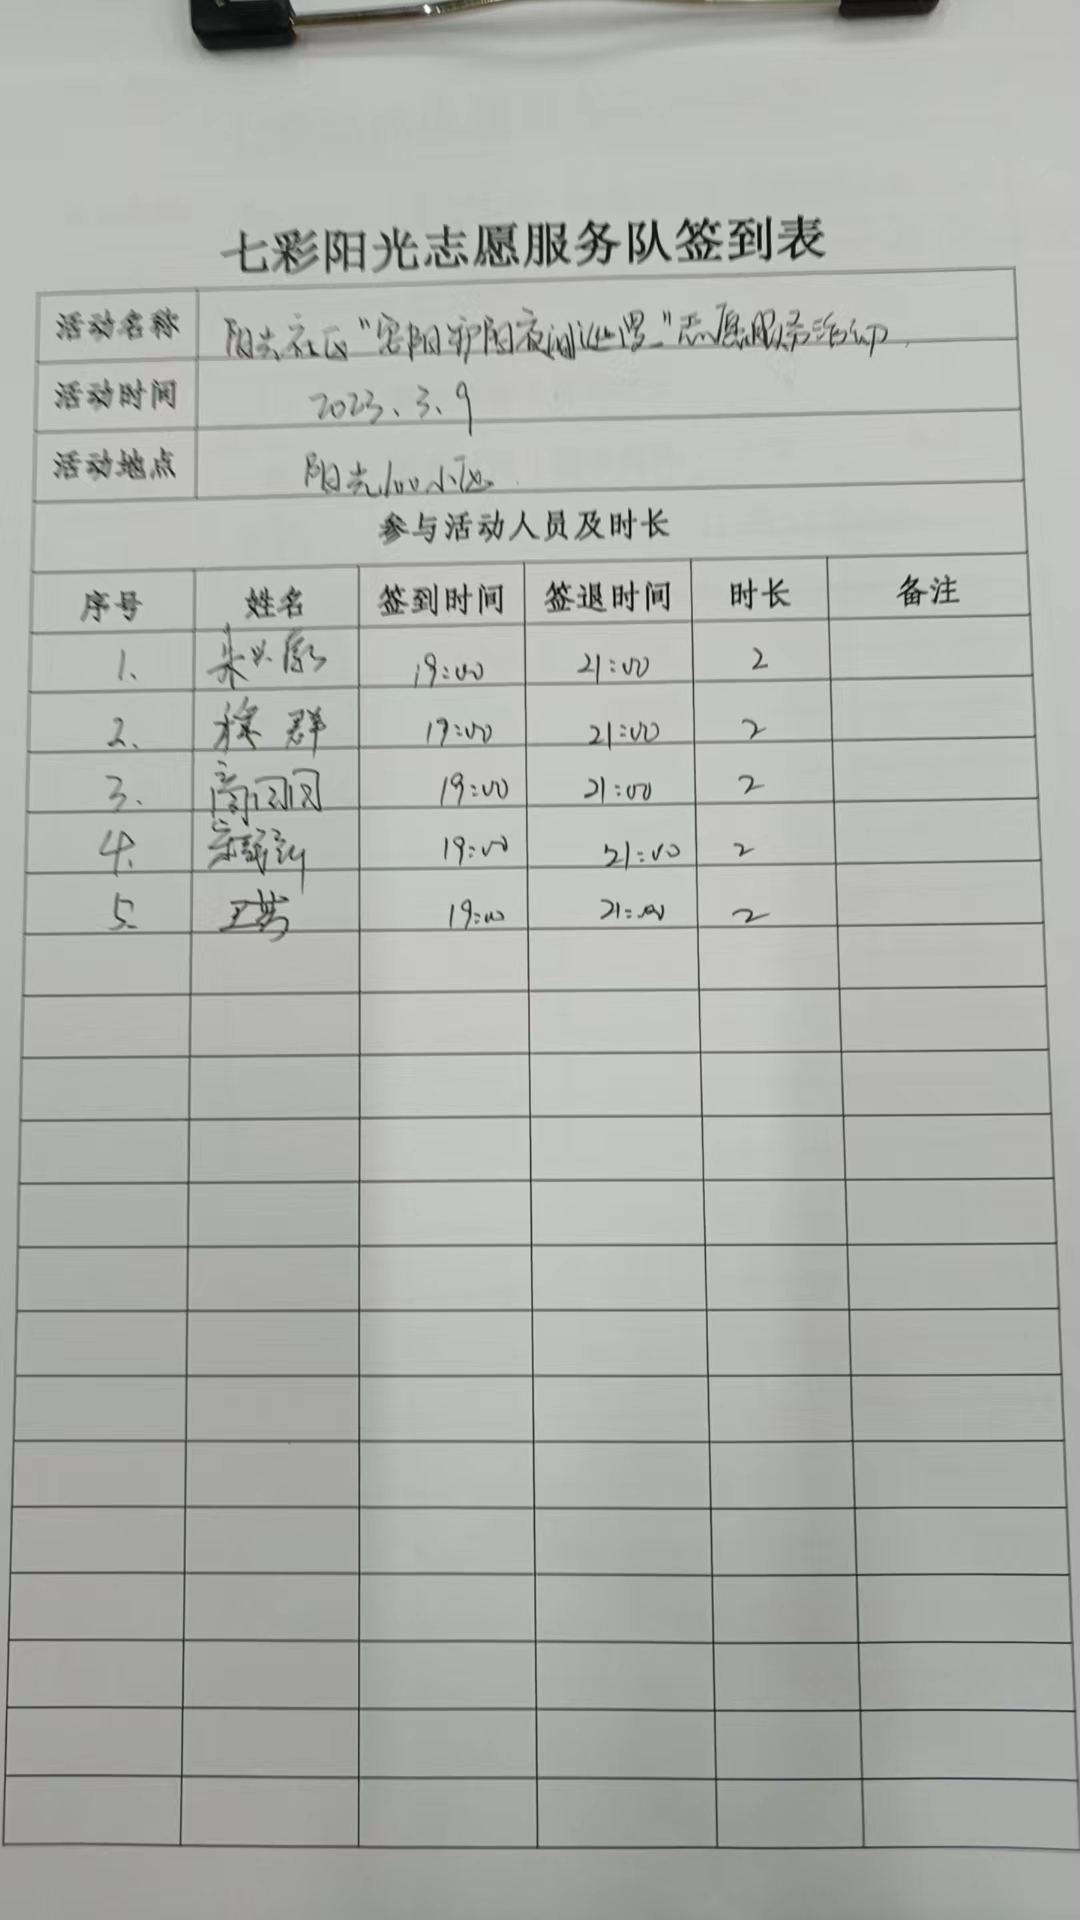 七彩阳光志愿服务队签到表
活动名称 阳光社区"安阳护阳夜间巡逻"志愿服务活动
活动时间 2023.3.9
活动地点 阳光100小区
参与活动人员及时长
序号 姓名 签到时间 签退时间 时长 备注
1. 19:00 21:00 2
2. 群 19:00 21:00 2
3. 高囡囡 19:00 21:00 2
4. 19:00 21:00 2
5. 王 19:00 21:00 2